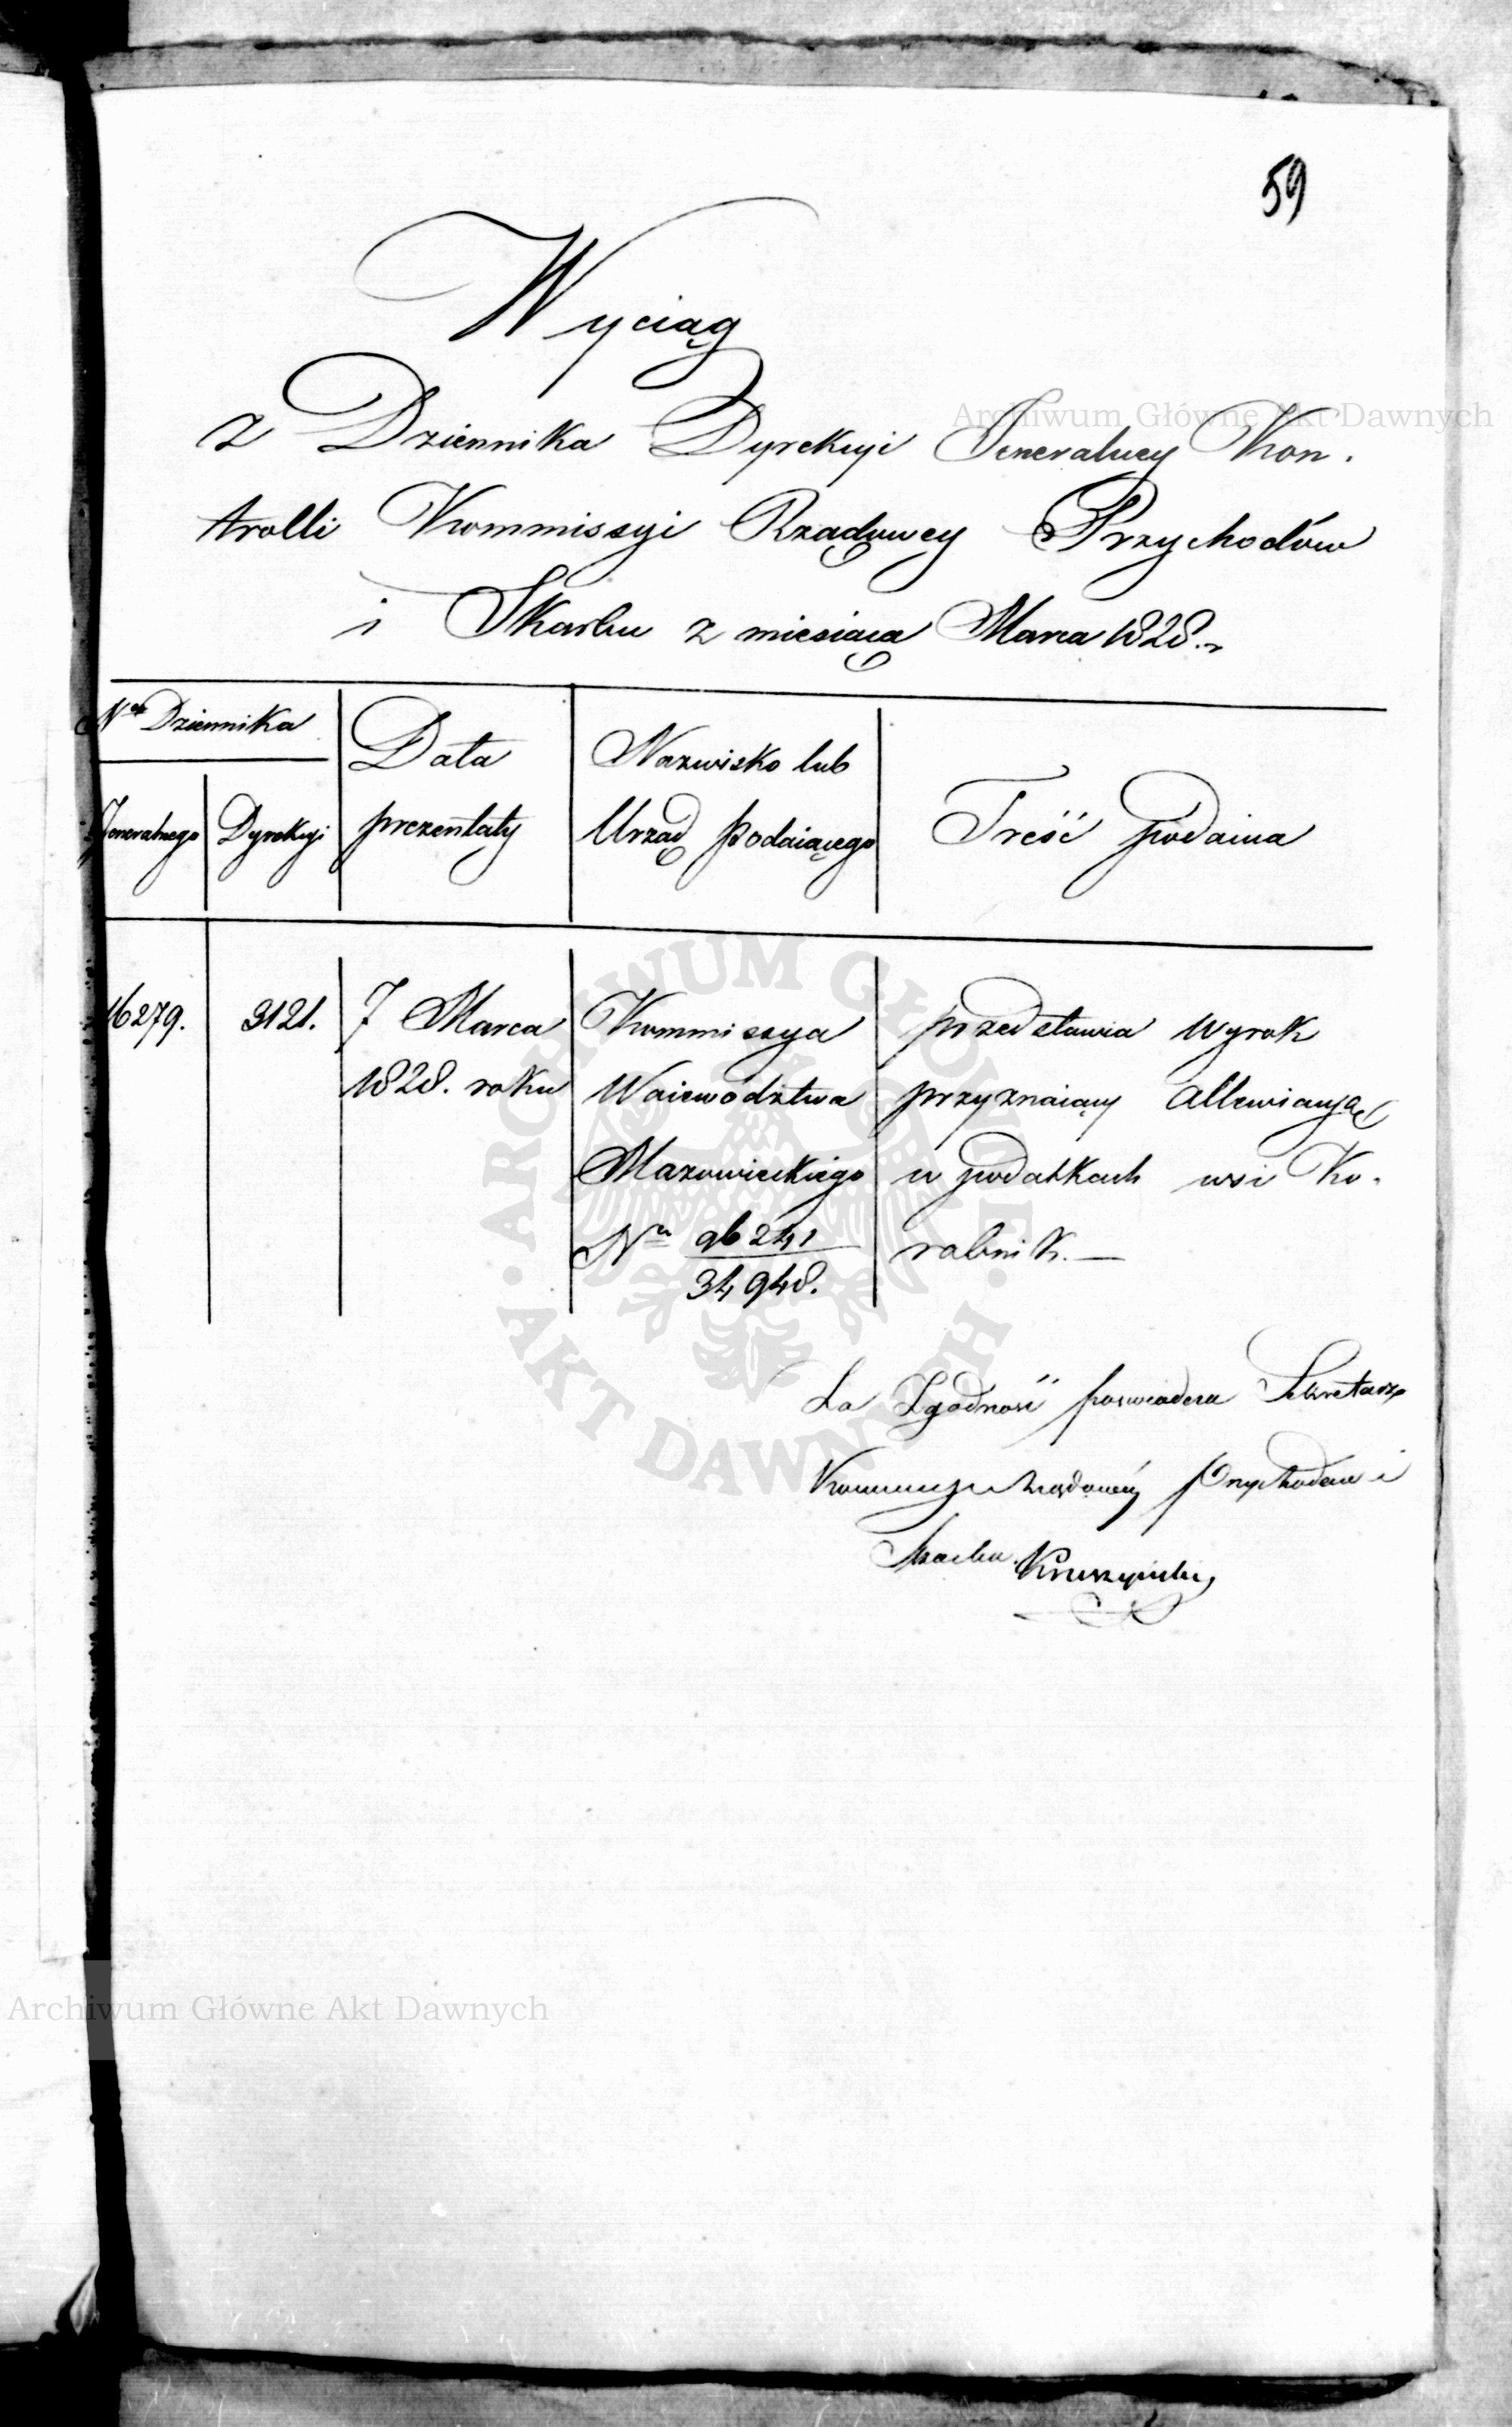 59
Wyciąg
z Dziennika Dyrekcyi Jeneralney Kon.
trolli Kommissyi Rządowey Przychodów
i Skarbu z miesiąca Marca 1828.r
Nro Dziennika
Jeneralnego
Dyrekcyi
Data
prezentaty
Nazwisko lub
Urząd Podaiącego
Treść podania
16279.
3121.
7 Marca
1828. roku
Kommissya
Woiewództwa
Mazowieckiego
Nr 96241
34948.
przedstawia Wyrok
przyznaiący Allewiacyą
w podatkach wsi Ko.
rabnik.—
Za Zgodność poswiadcza Sekretarz
Kommissyi Rządowey Przychodow i
Skarbu
Archiwum Główne Akt Dawnych
ARCHIWUM GŁÓWNE
AKT DAWNYCH
Archiwum Główne Akt Dawnych